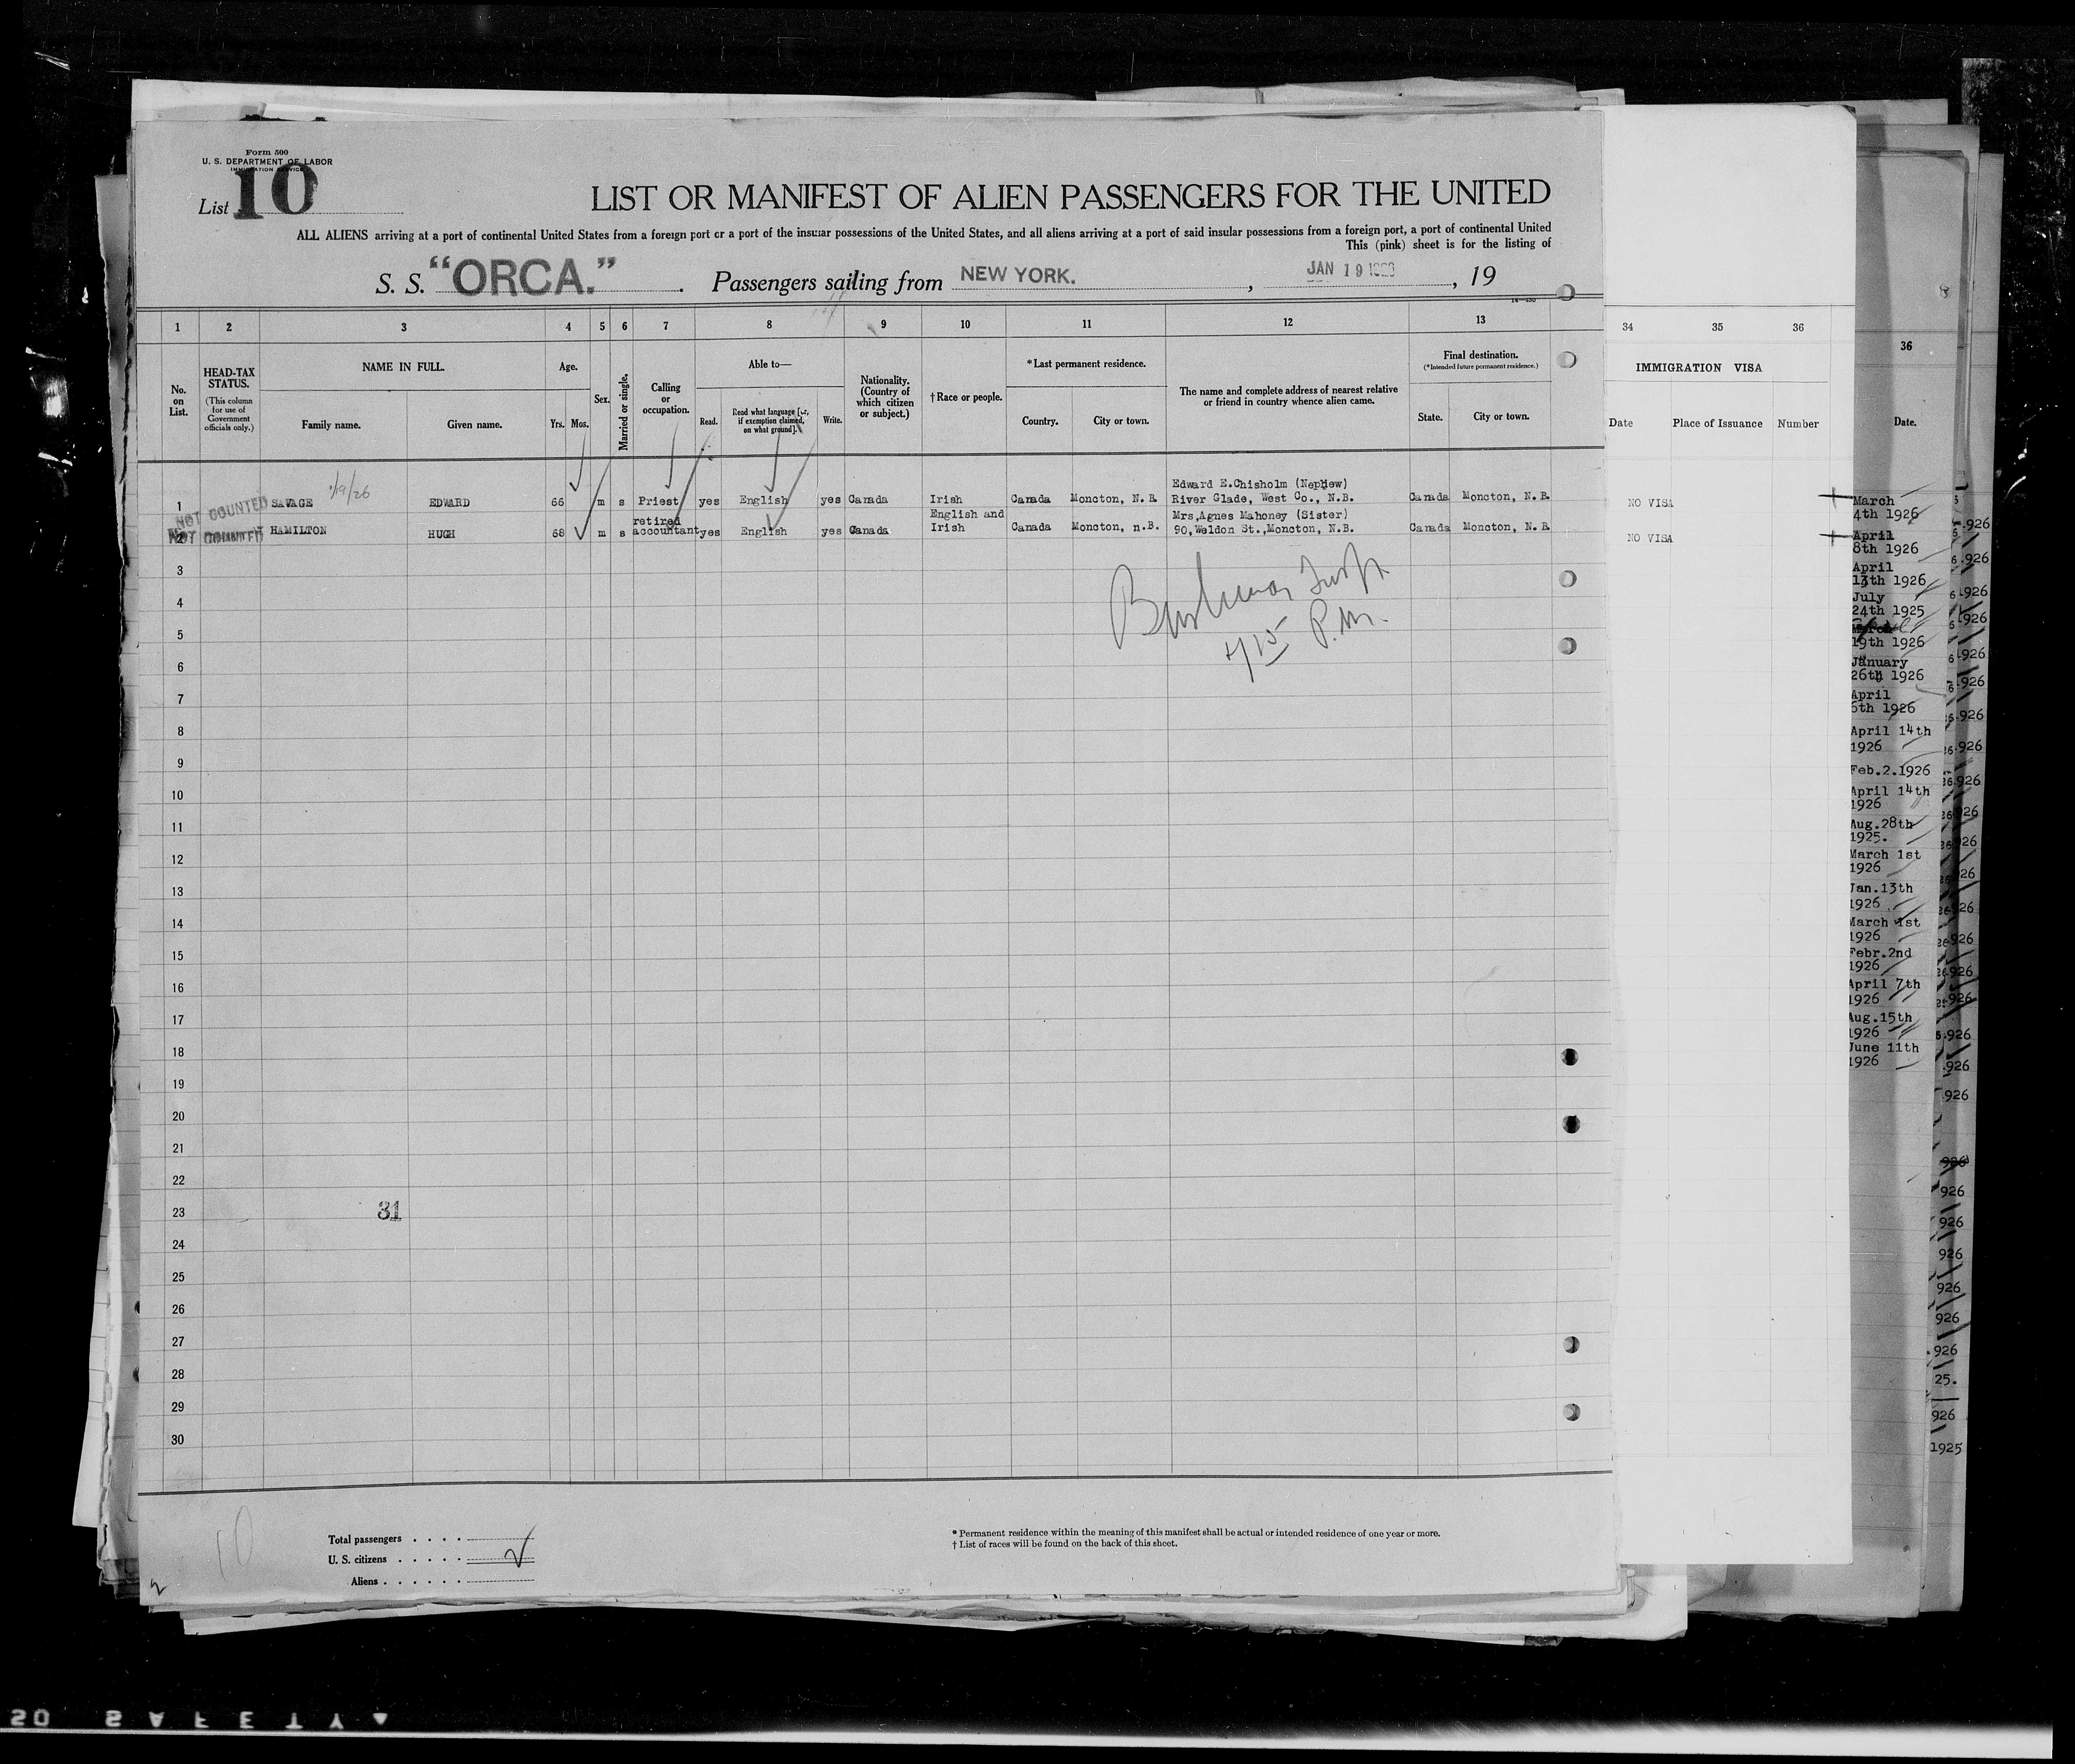 Form 500
U. S. DEPARTMENT OF LABOR
IMMIGRATION SERVICE
List 10
LIST OR MANIFEST OF ALIEN PASSENGERS FOR THE UNITED
ALL ALIENS arriving at a port of continental United States from a foreign port or a port of the insular possessions of the United States, and all aliens arriving at a port of said insular possessions from a foreign port, a port of continental United
This (pink) sheet is for the listing of
S. S. "ORCA." Passengers sailing from NEW YORK. , JAN 19 , 19
1 2 3 4 5 6 7 8 9 10 11 12 13
34 35 36
36
No. on List.
HEAD-TAX STATUS.
(This column for use of Government officials only.)
NAME IN FULL.
Family name. Given name.
Age.
Yrs. Mos.
Sex.
Married or single.
Calling or occupation.
Able to—
Read. Read what language [or, if exemption claimed, on what ground]. Write.
Nationality. (Country of which citizen or subject.)
†Race or people.
*Last permanent residence.
Country. City or town.
The name and complete address of nearest relative or friend in country whence alien came.
Final destination.
(*Intended future permanent residence.)
State. City or town.
IMMIGRATION VISA
Date Place of Issuance Number
Date.
1/19/26
1 NOT COUNTED SAVAGE EDWARD 66 m s Priest yes English yes Canada Irish Canada Moncton, N.B. Edward E.Chisholm (Nephew) River Glade, West Co., N.B. Canada Moncton, N.B. NO VISA
2 NOT COUNTED HAMILTON HUGH 68 m s retired accountant yes English yes Canada English and Irish Canada Moncton, n.B. Mrs,Agnes Mahoney (Sister) 90,Weldon St.,Moncton, N.B. Canada Moncton, N.B. NO VISA
P.M.
3
4
5
6
7
8
9
10
11
12
13
14
15
16
17
18
19
20
21
22
23 31
24
25
26
27
28
29
30
March
4th 1926
April
8th 1926
April
13th 1926
July
24th 1925
19th 1926
January
26th 1926
April
6th 1926
April 14th
1926
Feb.2.1926
April 14th
1926
Aug.28th
1925.
March 1st
1926
Jan.13th
1926
March 1st
1926
Febr.2nd
1926
April 7th
1926
Aug.15th
1926
June 11th
1926
1925
10
Total passengers
U. S. citizens
Aliens
2
* Permanent residence within the meaning of this manifest shall be actual or intended residence of one year or more.
† List of races will be found on the back of this sheet.
SAFETY